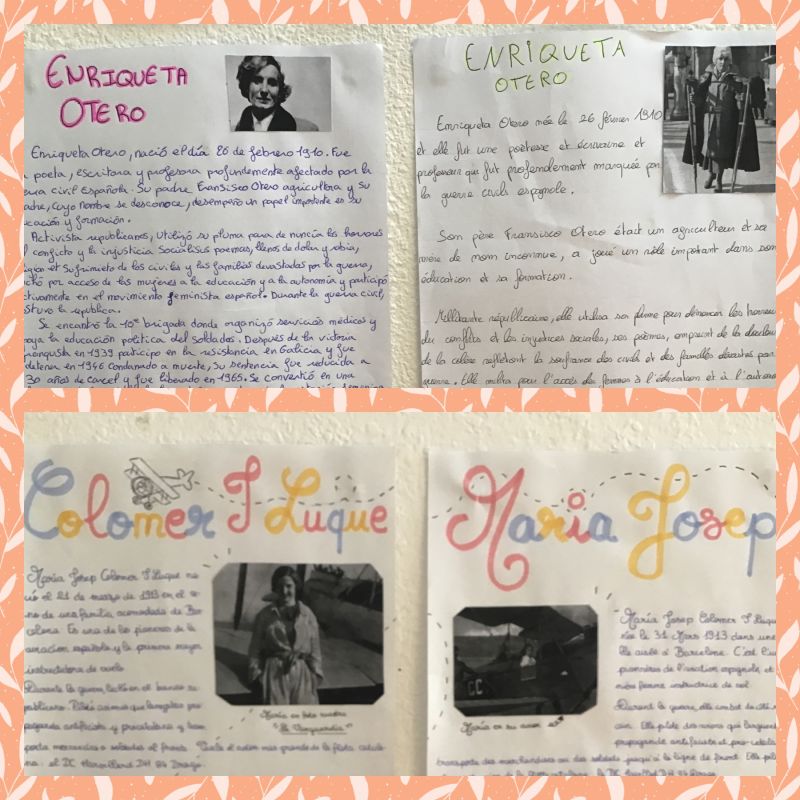 ENRIQUETA
OTERO
Enriqueta Otero, nació el día 26 de febrero 1910. Fue
poeta, escritora y profesora profundemente afectado por la
civil Española. Su padre Fransisco Otero agricultora y su
cuyo nombre se desconoce, desempeño un papel importante es su
y formación.
Activista republicanos, utilizó su pluma para de nuncia los horrores
conficto y la injusticia Socialisus poemas, llenos de dolor y rabia,
et Sufrimeto de los civiles y las familias devastadas por la guerra,
por acceso de las mujeres a la educación y a la autonomia y participó
tivamente en el movimiento feminista español. Durante la guerra civil,
stuvo la republica.
Se encontró la 10ª brigada donde organizó servicios médicos y
la educación politica del soldados. Después de la victoria
franquista en 1939 participo en la resistencia en Galicia y fue
detener en 1946 condamado a muerte, su sentencia fue reducida a
30 años de carcel y fue liberado en 1965. Se convertió en una
ENRIQUETA
OTERO
Enriqueta Otero née le 26 février 1910
et elle fut une poètesse et écrivaine et
professeur qui fut profondement marquée par
la guerre civils espagnole.
Son père Fransisco Otero était un agriculteur et sa
mère de nom inconnue, a joué un rôle important dans son
éducation et sa formation.
Militante républicaine, elle utilisa sa plume pour dénoncer les horreurs
du conflits et les injustices sociales, ses poèmes, empreint de la douleur
de la colère reflétent la souffrance des civils et des familles dévastés par
guerre. Elle milita pour l'accès des femmes à l'éducation et à l'autonom
Colomer I Luque
Maria Josep Colomer I Luque na
ció el 31 de marzo de 1913 en el se
no de una familia acomodada de Bar
celona. Es una de las pioneras de la
aviacion española y la primera mujer
instructora de vuelo
Durante la guerra, luchó en el bando re
publicano. Pilotó aviones que lanzaban pro
paganda antifascista y procatalana y trans
porta mercancias o soldados al frente.
el DC Havilland DH 84 Dragón
Maria en foto nuestra
"La Vanguardia"
Maria Josep
Maria en su avion
Maria Josep Colomer I Luque
née le 31 Mars 1913 dans une
aisée à Barcelone. C'est l'une
pionnières de l'aviation espagnole, et
mière femme instructrice de vol
Durant la guerre, elle combat du côté
Elle pilote des avions qui larguent
propagande antifasciste et pro-catala
transporte des marchandises ou des soldats jusqu'à la ligne de front. Elle pil